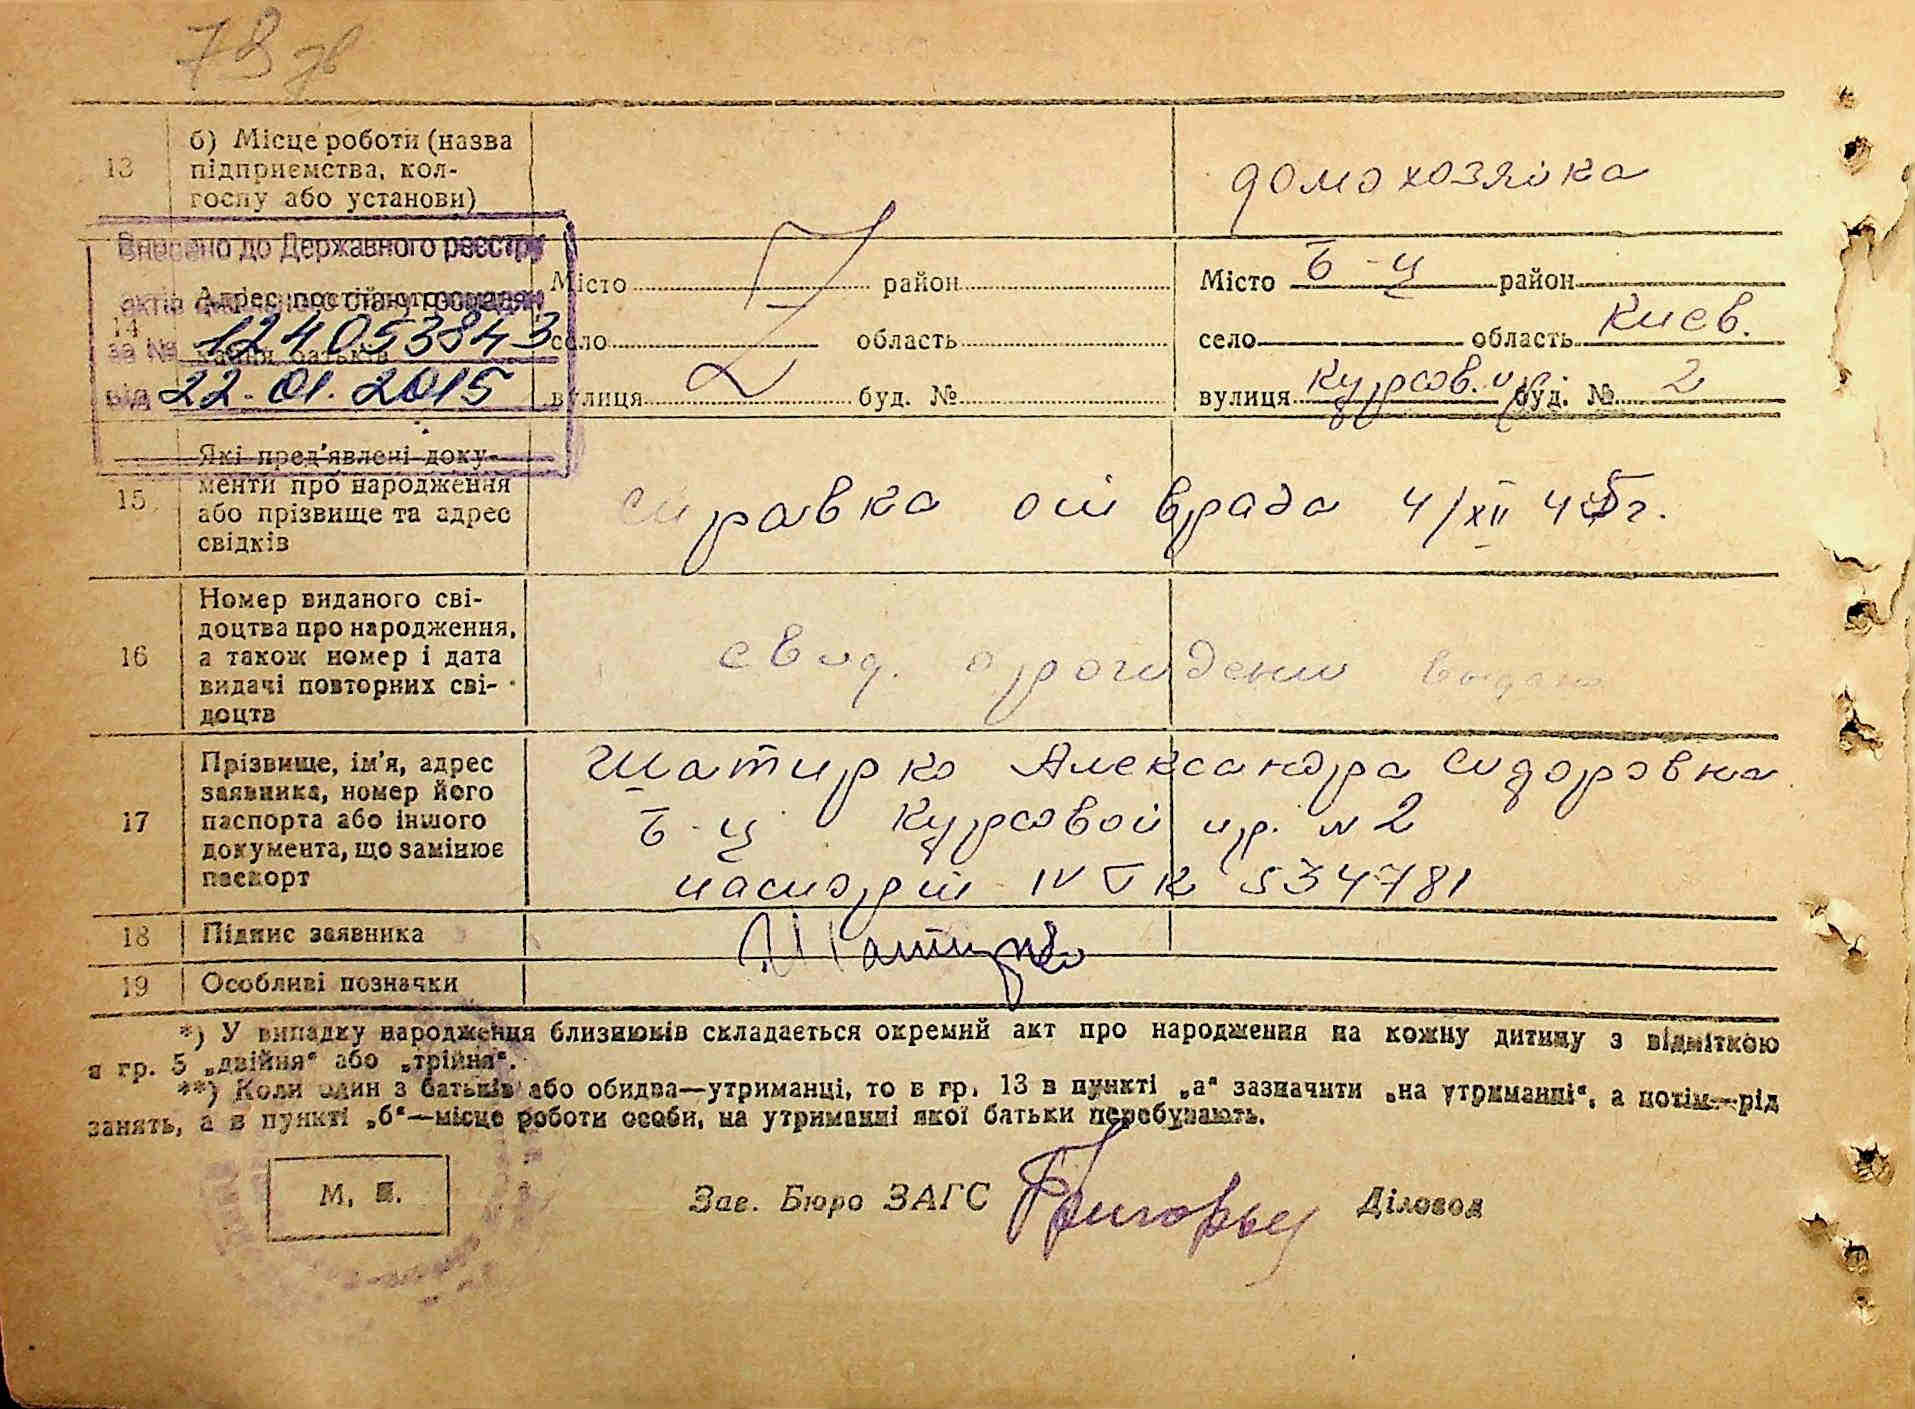 73 зв
13
б) Місце роботи (назва
підприємства, кол-
госпу або установи)
домохозяйка
Внесено до Державного реєстру
актів цивільного стану громадян
за № 12405384 3
від 22.01.2015
14
Адрес постійного
батьків
Місто район
село область
вулиця буд. №
Місто Б-Ц район
село область Киев.
вулиця Курсов. пр. буд. № 2
15
Які пред'явлені доку-
менти про народження
або прізвище та адрес
свідків
справка от врача 4/XII 45г.
16
Номер виданого сві-
доцтва про народження,
а також номер і дата
видачі повторних сві-
доцтв
свид. о рождении выдано
17
Прізвище, ім'я, адрес
заявника, номер його
паспорта або іншого
документа, що замінює
паспорт
Шатирко Александра Сидоровна
Б-Ц Курсовой пр. N 2
паспорт IV ТК 534781
18
Підпис заявника
Шатирко
19
Особливі позначки
*) У випадку народження близнюків складається окремий акт про народження на кожну дитину з відміткою
в гр. 5 „двійня“ або „трійня“.
**) Коли один з батьків або обидва—утриманці, то в гр. 13 в пункті „а“ зазначити „на утриманні“, а потім—рід
занять, а в пункті „б“—місце роботи особи, на утриманні якої батьки перебувають.
М. П.
Зав. Бюро ЗАГС
Діловод